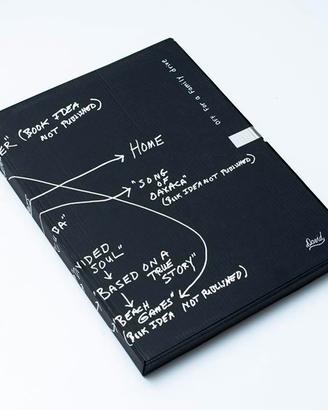 ER" (BOOK IDEA
NOT PUBLISHED)
HOME
"SONG
OF
OAXACA"
(BOOK IDEA NOT PUBLISHED)
DA"
VIDED
SOUL"
"BASED ON A
TRUE
STORY"
"BEACH
GAMES"
(BOOK IDEA NOT PUBLISHED)
Off for a family drive